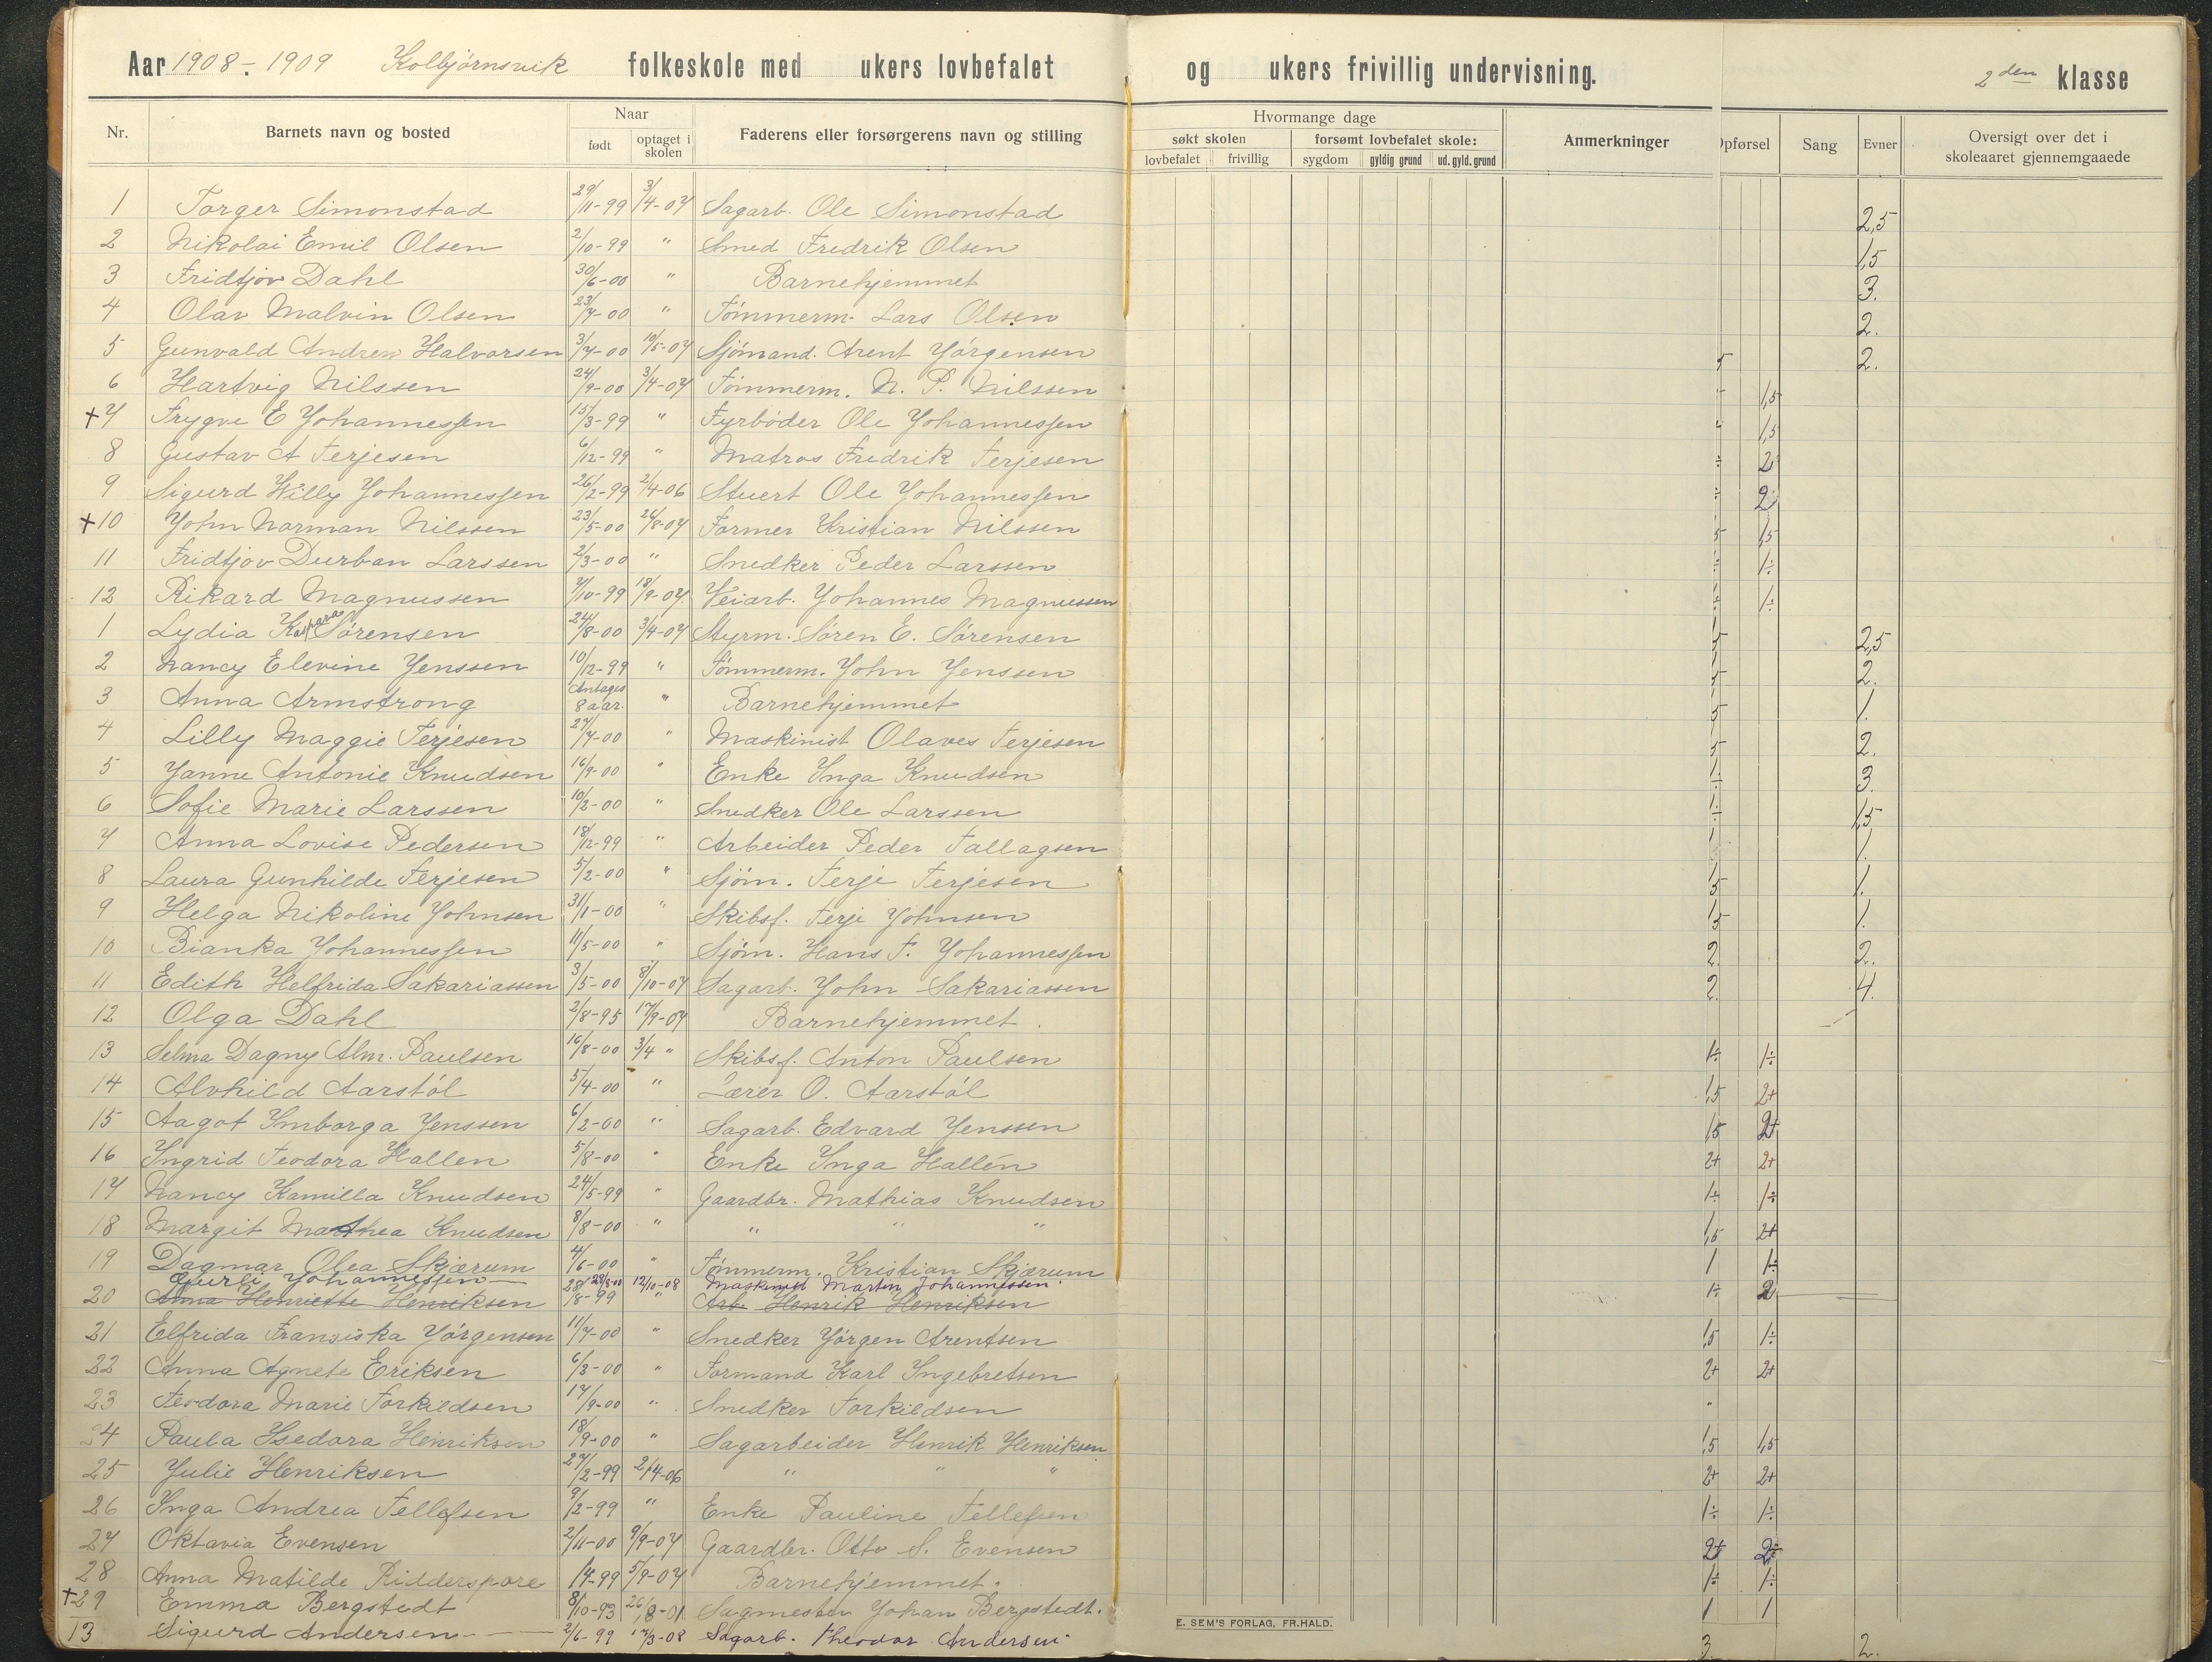 Aar 1908-1909 Kolbjørnsvik folkeskole med ukers lovbefalet og ukers frivillig undervisning. 2den klasse
Nr. Barnets navn og bosted Naar født optaget i skolen Faderens eller forsørgerens navn og stilling
Hvormange dage
søkt skolen forsømt lovbefalet skole:
lovbefalet frivillig sygdom gyldig grund ud. gyld. grund
Anmerkninger Opførsel Sang Evner
Oversigt over det i
skoleaaret gjennemgaaede
1 Torger Simonstad 29/11-99 3/4-07 Sagarb. Ole Simonstad 2,5
2 Nikolai Emil Olsen 2/10-99 " Smed Fredrik Olsen 1,5
3 Fridtjov Dahl 30/6-00 " Barnehjemmet 3.
4 Olav Malvin Olsen 23/7-00 " Tømmerm. Lars Olsen 2.
5 Gunvald Andrew Halvorsen 3/7-00 10/5-07 Sjømand. Arent Jørgensen 2.
6 Hartvig Nilssen 24/9-00 3/4-07 Tømmerm. N. P. Nilssen 1,5
+7 Trygve E Johannessen 15/3-99 " Fyrbøder Ole Johannessen 1,5
8 Gustav A Terjesen 6/12-99 " Matros Fredrik Terjesen 2
9 Sigurd Willy Johannessen 26/2-99 2/4-06 Stuert Ole Johannessen 2
+10 John Norman Nilssen 23/5-00 26/8-07 Former Kristian Nilssen 1,5
11 Fridtjov Durban Larssen 2/3-00 " Snedker Peder Larssen 1÷
12 Rikard Magnussen 7/10-99 18/9-07 Veiarb. Johannes Magnussen 1÷
1 Lydia Kaspara Sørensen 24/8-00 3/4-07 Styrm. Søren E. Sørensen 2,5
2 Nancy Elevine Jenssen 10/12-99 " Tømmerm. John Jenssen 2.
3 Anna Armstrong Antages 8 aar. " Barnehjemmet 1.
4 Lilly Maggie Terjesen 27/7-00 " Maskinist Olaves Terjesen 2.
5 Janne Antonie Knudsen 16/9-00 " Enke Inga Knudsen 3.
6 Sofie Marie Larssen 10/2-00 " Snedker Ole Larssen 1,5
7 Anna Lovise Pedersen 18/12-99 " Arbeider Peder Tallagsen 1.
8 Laura Gunhilde Terjesen 5/2-00 " Sjøm. Terje Terjesen 1.
9 Helga Nikoline Johnsen 31/1-00 " Skibsf. Terje Johnsen 1.
10 Bianka Johannessen 11/5-00 " Sjøm. Hans T. Johannessen 2. 2.
11 Edith Helfrida Sakariassen 3/5-00 8/10-07 Sagarb. John Sakariassen 2. 4.
12 Olga Dahl 2/8-95 17/9-07 Barnehjemmet
13 Selma Dagny Alm. Paulsen 16/8-00 3/4 " Skibsf. Anton Paulsen 1÷ 1÷
14 Alvhild Aarstøl 5/4-00 " Lærer O. Aarstøl 1,5 2+
15 Aagot Imborga Jenssen 6/2-00 " Sagarb. Edvard Jenssen 1,5 2+
16 Ingrid Teodora Hallen 5/8-00 " Enke Inga Hallén 2+ 2+
17 Nancy Kamilla Knudsen 24/5-99 " Gaardbr. Mathias Knudsen 1÷ 1÷
18 Margit Mathea Knudsen 8/8-00 " " " " 1,5 2+
19 Dagmar Olea Skjærum 4/6-00 " Tømmerm. Kristian Skjærum 1 1÷
Gurli Johannessen 28/8-00 12/10-08 Maskinist Martin Johannessen
20 Anna Henriette Henriksen 28/8-99 " Arb. Henrik Henriksen 1÷ 2
21 Elfrida Fransiska Jørgensen 11/7-00 " Snedker Jørgen Arentsen 1,5 1÷
22 Anna Agnete Eriksen 6/3-00 " Formand Karl Ingebretsen 2+ 2+
23 Teodora Marie Torkildsen 17/9-00 " Snedker Torkildsen "
24 Paula Isedora Henriksen 18/9-00 " Sagarbeider Henrik Henriksen 1,5 1,5
25 Julie Henriksen 27/2-99 2/4-06 " " " 2+ 2+
26 Inga Andrea Tellefsen 9/2-99 " Enke Pauline Tellefsen 1÷ 1÷
27 Oktavia Evensen 2/11-00 9/9-07 Gaardbr. Otto S. Evensen 2+ 2÷
28 Anna Matilde Ridderspore 1/4-99 5/9-07 Barnehjemmet. 1÷ 1÷
+29 Emma Bergstedt 8/10-93 26/8-01 Sagmester Johan Bergstedt. 1 1
13 Sigurd Andersen 2/6-99 17/3-08 Sagarb. Theodor Andersen 3. 2.
E. SEM'S FORLAG, FR.HALD.